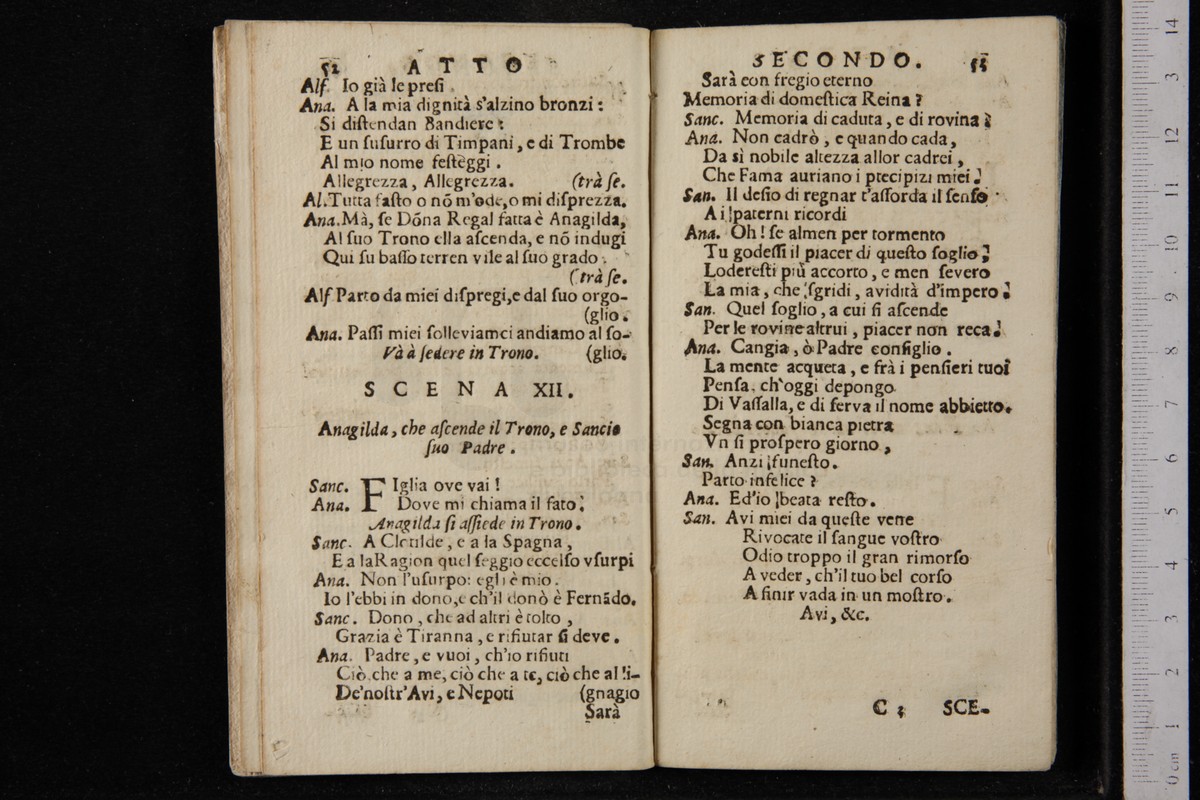 52 ATTO
Alf. Io già le presi.
Ana. A la mia dignità s'alzino bronzi:
Si distendan Bandiere:
E un susurro di Timpani, e di Trombe
Al mio nome festeggi.
Allegrezza, Allegrezza. (trà se.
Al. Tutta fasto o nõ m'ode, o mi disprezza.
Ana. Mà, se Dõna Regal fatta è Anagilda,
Al suo Trono ella ascenda, e nõ indugi
Qui su basso terren vile al suo grado.
(trà se.
Alf Parto da miei dispregi, e dal suo orgo-
(glio.
Ana. Passi miei solleviamci andiamo al so-
Và à sedere in Trono. (glio.
SCENA XII.
Anagilda, che ascende il Trono, e Sancio
suo Padre.
Sanc. FIglia ove vai!
Ana. Dove mi chiama il fato.
Anagilda si assiede in Trono.
Sanc. A Clotilde, e a la Spagna,
E a la Ragion quel seggio eccelso vsurpi
Ana. Non l'usurpo: egli è mio.
Io l'ebbi in dono, e ch'il donò è Fernãdo.
Sanc. Dono, che ad altri è tolto,
Grazia è Tiranna, e rifiutar si deve.
Ana. Padre, e vuoi, ch'io rifiuti
Ciò che a me, ciò che a te, ciò che al li-
De'nostr'Avi, e Nepoti (gnagio
Sarà
SECONDO.
Sarà con fregio eterno
Memoria di domestica Reina?
Sanc. Memoria di caduta, e di rovina!
Ana. Non cadrò, e quando cada,
Da sì nobile altezza allor cadrei,
Che Fama auriano i precipizi miei!
San. Il desio di regnar t'assorda il senso
A i paterni ricordi
Ana. Oh! se almen per tormento
Tu godessi il piacer di questo soglio!
Loderesti più accorto, e men severo
La mia, che sgridi, avidità d'impero!
San. Quel soglio, a cui si ascende
Per le rovine altrui, piacer non reca!
Ana. Cangia, ò Padre consiglio.
La mente acqueta, e frà i pensieri tuoi
Pensa, ch'oggi depongo
Di Vassalla, e di serva il nome abbietto.
Segna con bianca pietra
Vn sì prospero giorno,
San. Anzi funesto.
Parto infelice?
Ana. Ed'io beata resto.
San. Avi miei da queste vene
Rivocate il sangue vostro
Odio troppo il gran rimorso
A veder, ch'il tuo bel corso
A finir vada in un mostro.
Avi, &c.
C SCE-